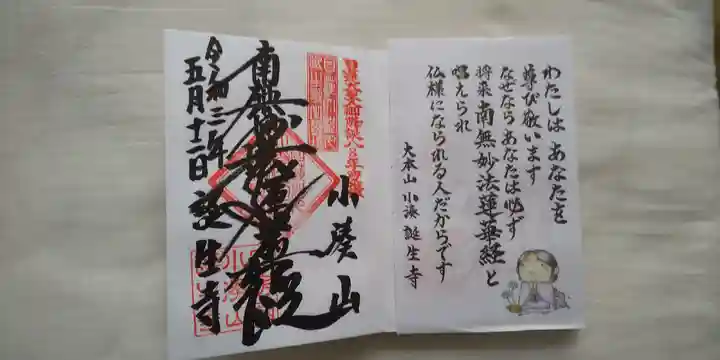 わたしは あなたを
尊び敬います
なぜなら あなたは必ず
将来 南無妙法蓮華経と
唱えられ
仏様になられる人だからです
大本山 小湊 誕生寺
小湊山
南無妙法蓮華経
令和三年
五月十二日 誕生寺